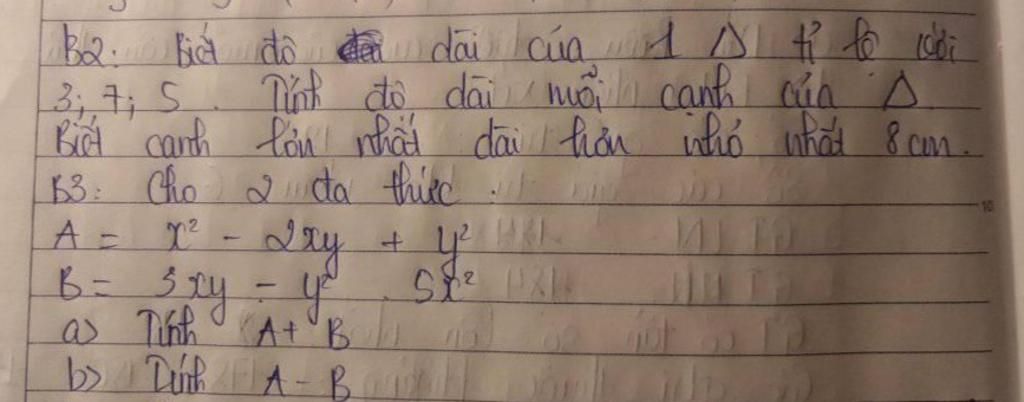 B2: Biết độ dài của 1 Δ tỉ lệ với
3; 7; 5. Tính độ dài mỗi cạnh của Δ
Biết cạnh lớn nhất dài hơn nhỏ nhất 8 cm.
B3: Cho 2 đa thức.
A = x² - 2xy + y²
B = 3xy - y² 5x²
a) Tính A + B
b) Tính A - B